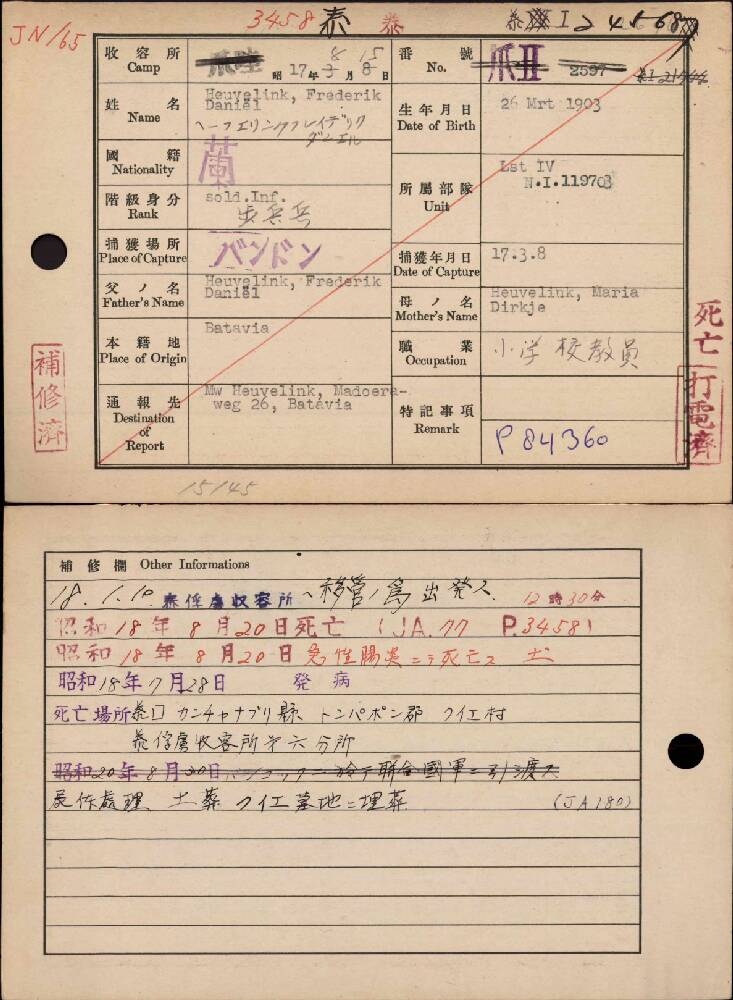 JN/65
3458 泰 泰
泰 I 24568
収容所 Camp
爪哇
昭17年8月15日
番號 No.
爪II 2597
姓名 Name
Heuvelink, Frederik
Daniël
ヘーフエリンクフレイデリク
ダニエル
生年月日 Date of Birth
26 Mrt 1903
國籍 Nationality
蘭
所属部隊 Unit
Lst IV
N.I.119703
階級身分 Rank
sold.Inf.
歩兵兵
捕獲場所 Place of Capture
バンドン
捕獲年月日 Date of Capture
17.3.8
父ノ名 Father's Name
Heuvelink, Frederik
Daniël
母ノ名 Mother's Name
Heuvelink, Maria
Dirkje
本籍地 Place of Origin
Batavia
職業 Occupation
小学校教員
通報先 Destination of Report
Mw Heuvelink, Madoera-
weg 26, Batavia
特記事項 Remark
P 84360
補修濟
死亡
打電濟
15145
補修欄 Other Informations
18.1.10 泰俘虜収容所ヘ移管ノ為出発ス 12時30分
昭和18年8月20日死亡 (JA.77 P.3458)
昭和18年8月20日急性腸炎ニテ死亡ス
昭和18年7月28日 発病
死亡場所泰国カンチャナブリ縣トンパポン郡クイエ村
泰俘虜収容所第六分所
昭和20年8月30日バンコックニ於テ聯合國軍ニ引渡ス
屍体處理、土葬 クイエ墓地ニ埋葬 (JA180)